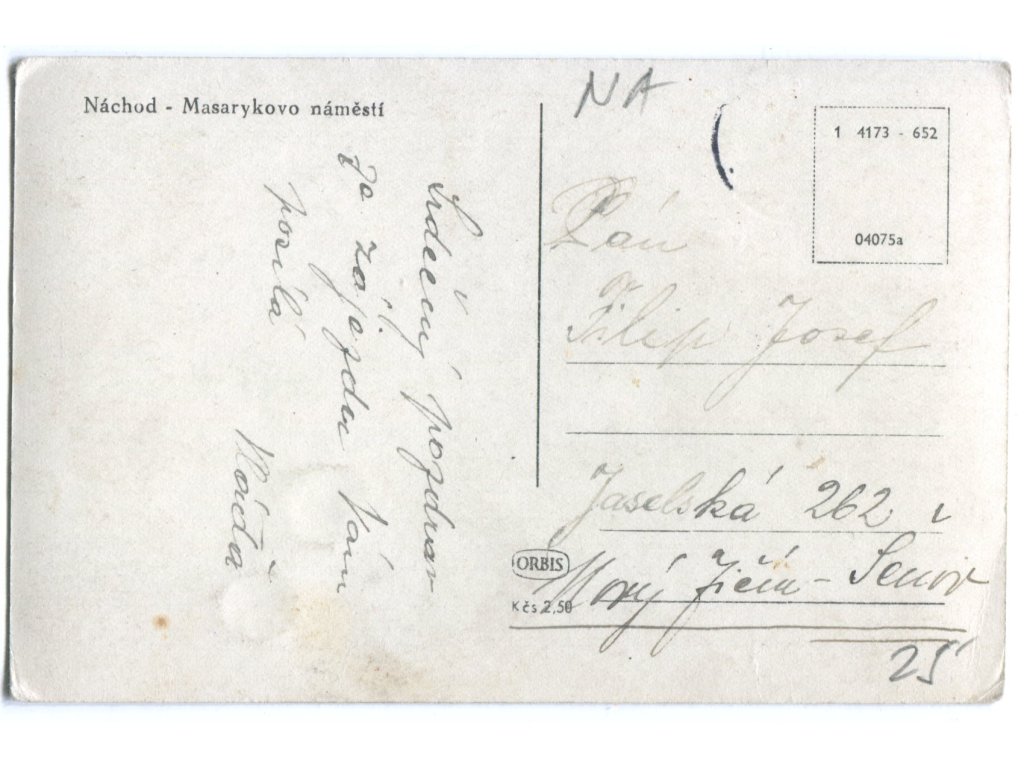 Náchod - Masarykovo náměstí
NA
1 4173 - 652
04075a
Srdečný pozdrav
ze zájezdu Vám
posílá
Náďa
Pán
Filip Josef
Jaselská 262
Nový Jičín - Šenov
ORBIS
Kčs 2,50
25